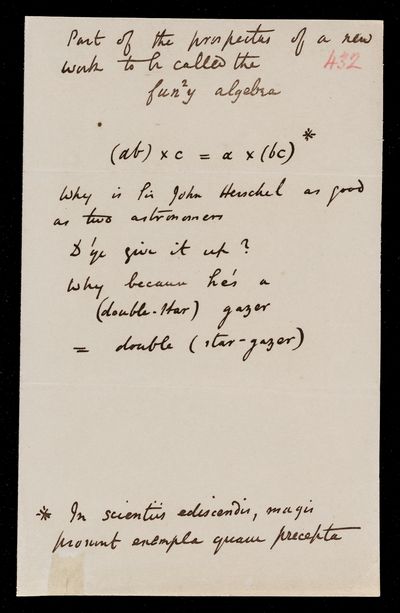 Part of the prospectus of a new
work to be called the 432
fun²y algebra
(ab) × c = a × (bc) *
Why is Sir John Herschel as good
as two astronomers
D'ye give it up?
Why because he's a
(double-star) gazer
= double (star-gazer)
* In scientiis ediscendis, magis
prosunt exempla quam precepta